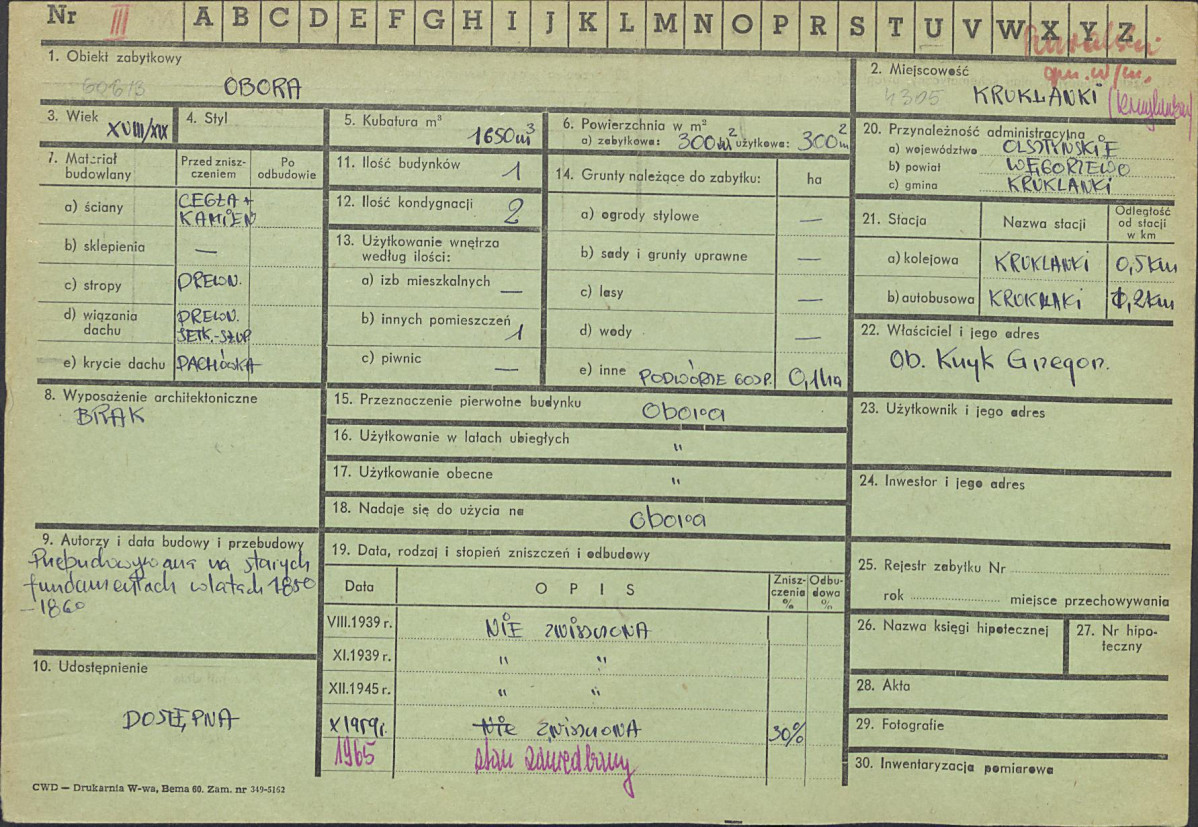 Nr III A B C D E F G H I J K L M N O P R S T U V W X Y Z
1. Obiekt zabytkowy
OBORA
2. Miejscowość
4305 KRUKLANKI
gm. w/m.
3. Wiek XVIII/XIX
4. Styl
5. Kubatura m³ 1650m³
6. Powierzchnia w m²
a) zabytkowa: 300m² użytkowa: 300m²
7. Materiał budowlany
Przed zniszczeniem
Po odbudowie
a) ściany CEGŁA + KAMIEŃ
b) sklepienia —
c) stropy DREWN.
d) wiązania dachu DREWN.
e) krycie dachu DACHÓWKA
8. Wyposażenie architektoniczne
BRAK
9. Autorzy i data budowy i przebudowy
Przebudowywana na starych
fundamentach w latach 1850
– 1860
10. Udostępnienie
DOSTĘPNA
11. Ilość budynków 1
12. Ilość kondygnacji 2
13. Użytkowanie wnętrza
według ilości:
a) izb mieszkalnych —
b) innych pomieszczeń 1
c) piwnic —
14. Grunty należące do zabytku: ha
a) ogrody stylowe —
b) sady i grunty uprawne —
c) lasy —
d) wody —
e) inne PODWÓRZE GOSP. 0,1ha
15. Przeznaczenie pierwotne budynku obora
16. Użytkowanie w latach ubiegłych "
17. Użytkowanie obecne "
18. Nadaje się do użycia na obora
19. Data, rodzaj i stopień zniszczeń i odbudowy
Data OPIS Zniszczenia % Odbudowa %
VIII.1939 r. NIE ZNISZCZONA
XI.1939 r. " "
XII.1945 r. " "
X 1959 r. NIE ZNISZCZONA 30%
1965 stan zaniedbany
20. Przynależność administracyjna
a) województwo OLSZTYŃSKIE
b) powiat WĘGORZEWO
c) gmina KRUKLANKI
21. Stacja
Nazwa stacji
Odległość od stacji w km
a) kolejowa KRUKLANKI 0,5km
b) autobusowa KRUKLANKI 0,2km
22. Właściciel i jego adres
Ob. Knyk Grzegorz.
23. Użytkownik i jego adres
24. Inwestor i jego adres
25. Rejestr zabytku Nr
rok miejsce przechowywania
26. Nazwa księgi hipotecznej
27. Nr hipoteczny
28. Akta
29. Fotografie
30. Inwentaryzacja pomiarowa
CWD — Drukarnia W-wa, Bema 60. Zam. nr 349-5162